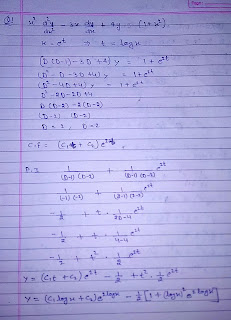 Page:
Q!
x² d²y/dx² - 3x dy/dx + 4y = (1+x²)
x = eᵗ ⇒ t = logx
(D(D-1) - 3D + 4) y = 1+e²ᵗ
(D² - D - 3D + 4) y = 1+e²ᵗ
(D² - 4D + 4) y = 1+e²ᵗ
D² - 2D - 2D + 4
D(D-2) - 2(D-2)
(D-2) (D-2)
D = 2, D = 2
C.F = (C₁t + C₂) e²ᵗ,
P.I 1/(D-2)(D-2) + 1/(D-2)(D-2) e²ᵗ
+ e²ᵗ
- 1/2 + t · 1/2D-4 e²ᵗ
- 1/2 + t · 1/4-4 e²ᵗ
- 1/2 + t² · 1/2 e²ᵗ
y = (C₁t + C₂) e²ᵗ - 1/2 + t² · 1/2 e²ᵗ
y = (C₁ logx + C₂) e²ˡᵒᵍˣ - 1/2 [1 + (logx)² e²ˡᵒᵍˣ]